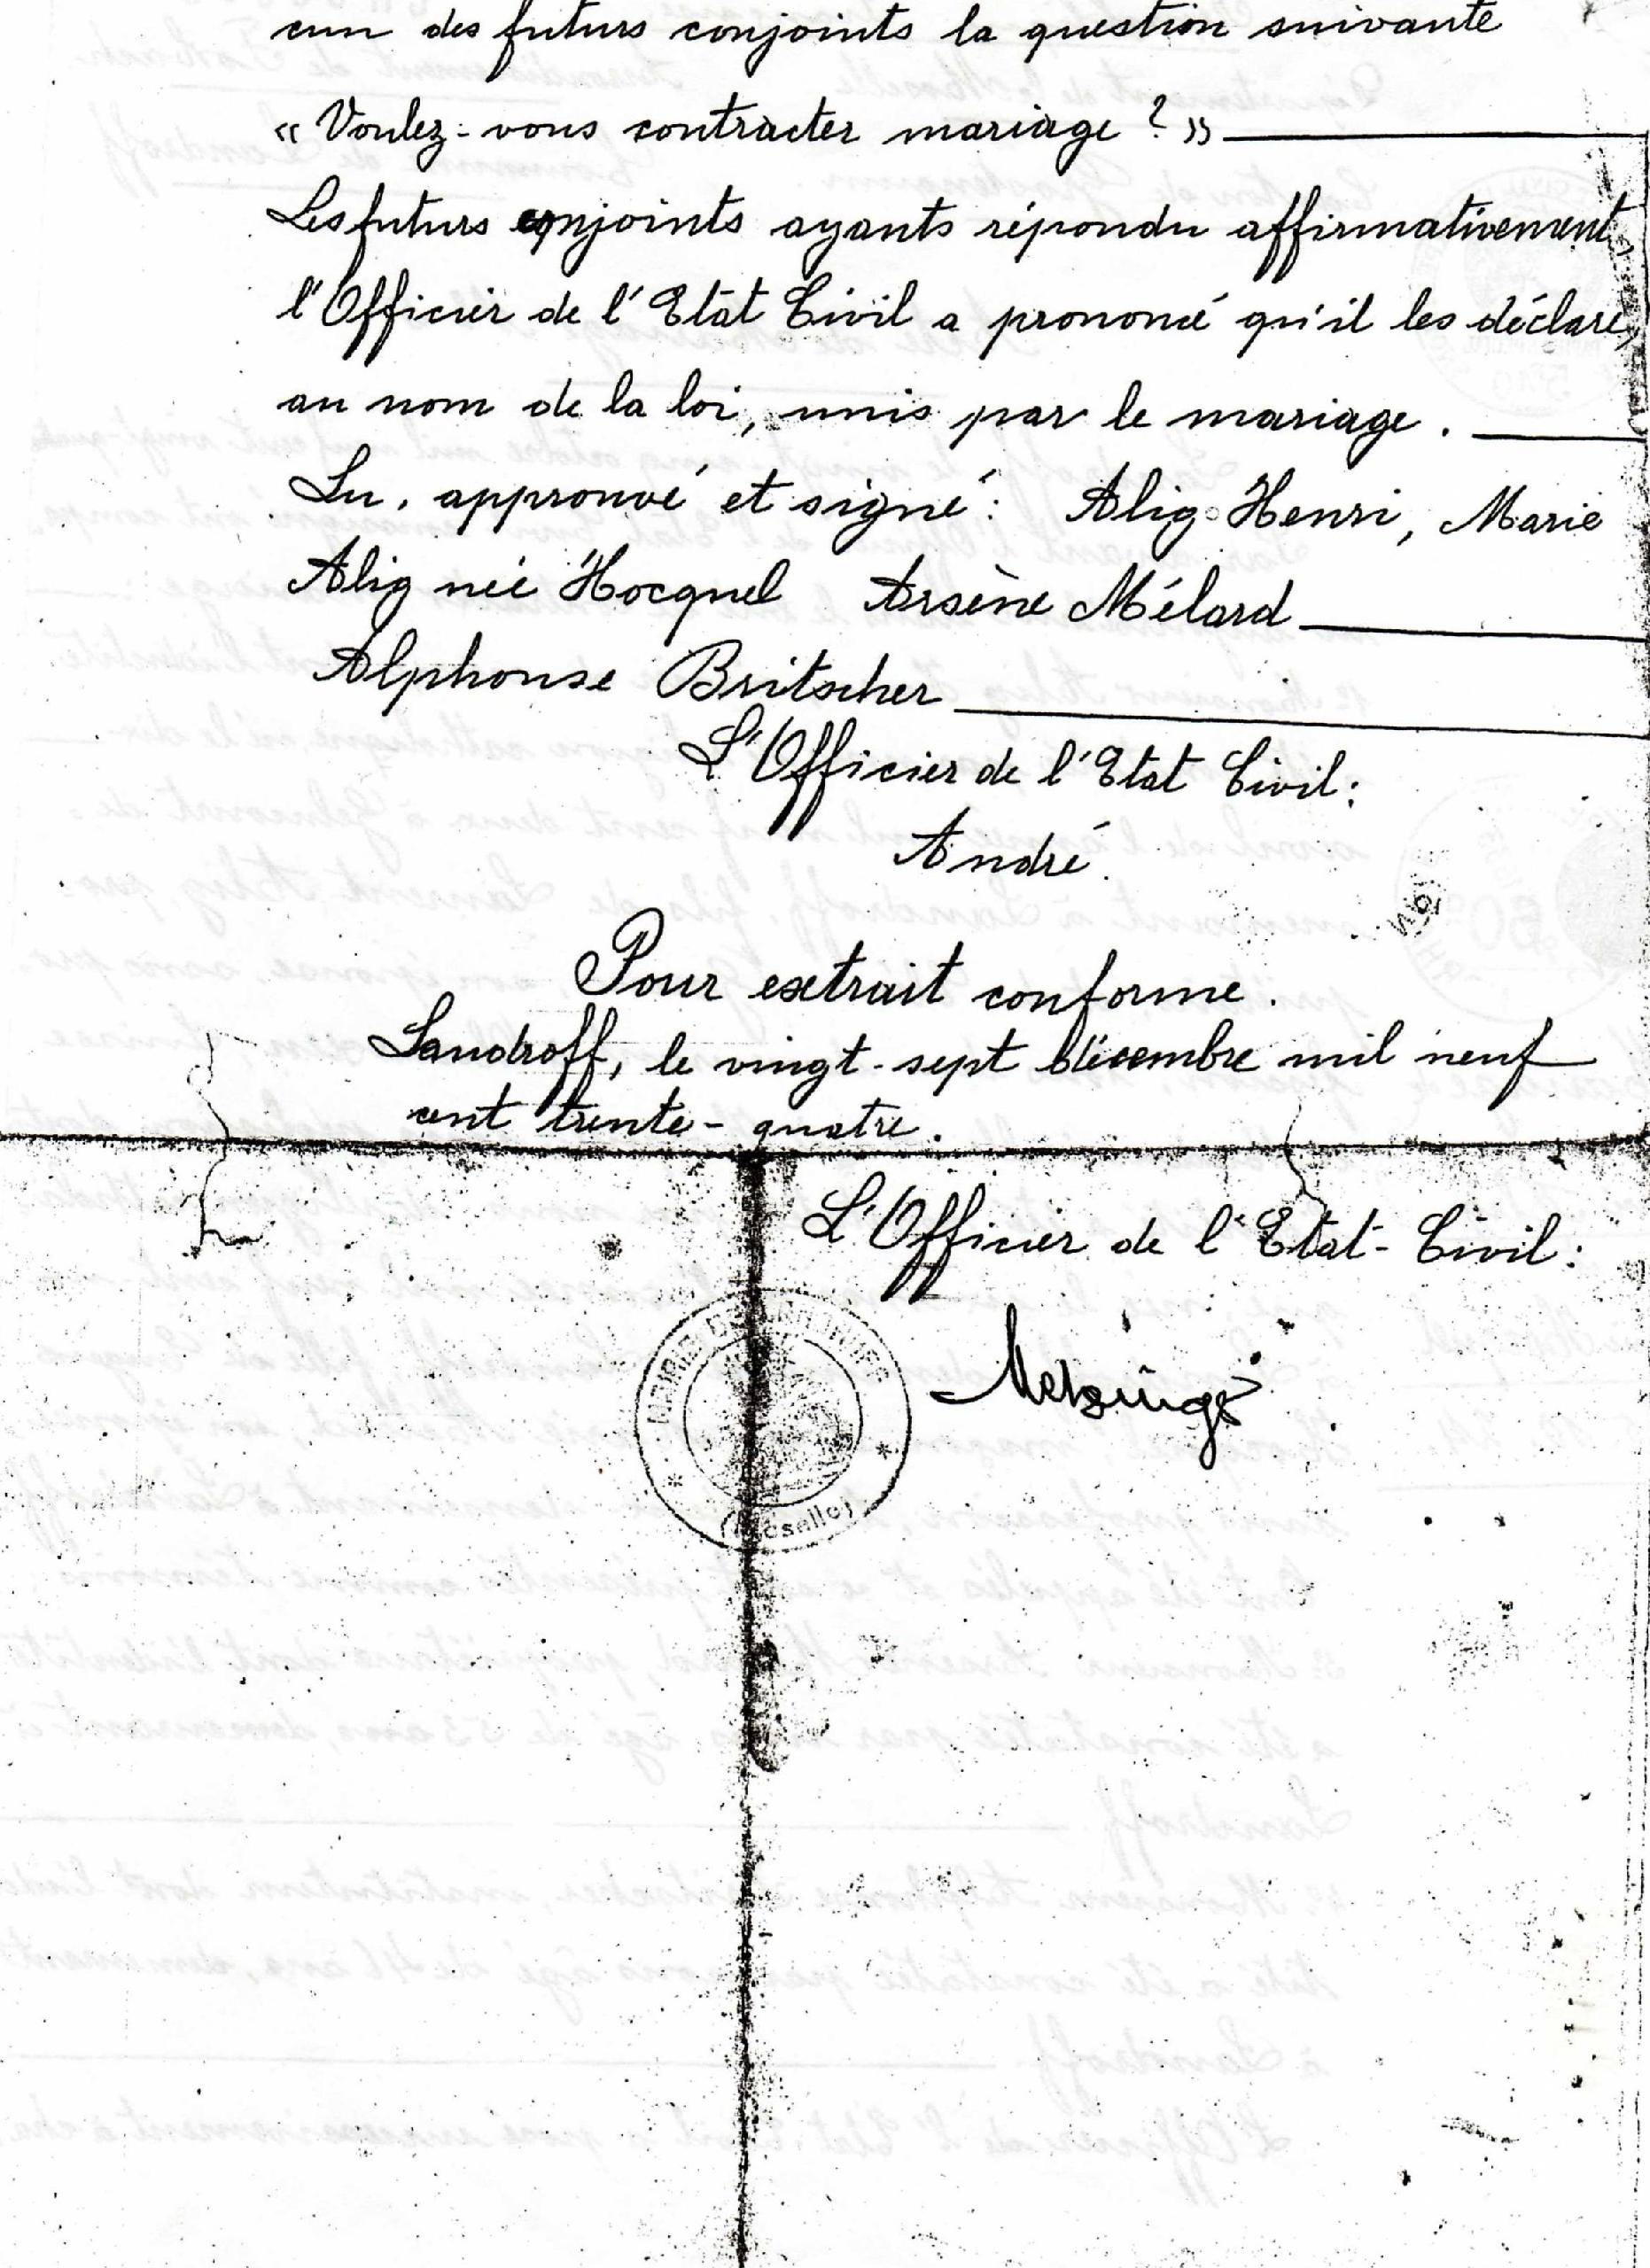 cun des futurs conjoints la question suivante
« Voulez-vous contracter mariage ? »
Les futurs conjoints ayants répondu affirmativement,
l'Officier de l'Etat Civil a prononcé qu'il les déclare,
au nom de la loi, unis par le mariage.
Lu, approuvé et signé: Alig Henri, Marie
Alig née Hocquel Arsène Mélard
Alphonse Britscher
L'Officier de l'Etat Civil:
André.
Pour extrait conforme.
Landroff, le vingt-sept décembre mil neuf
cent trente-quatre.
L'Officier de l'Etat-Civil:
MAIRIE DE LANDROFF
(Moselle)